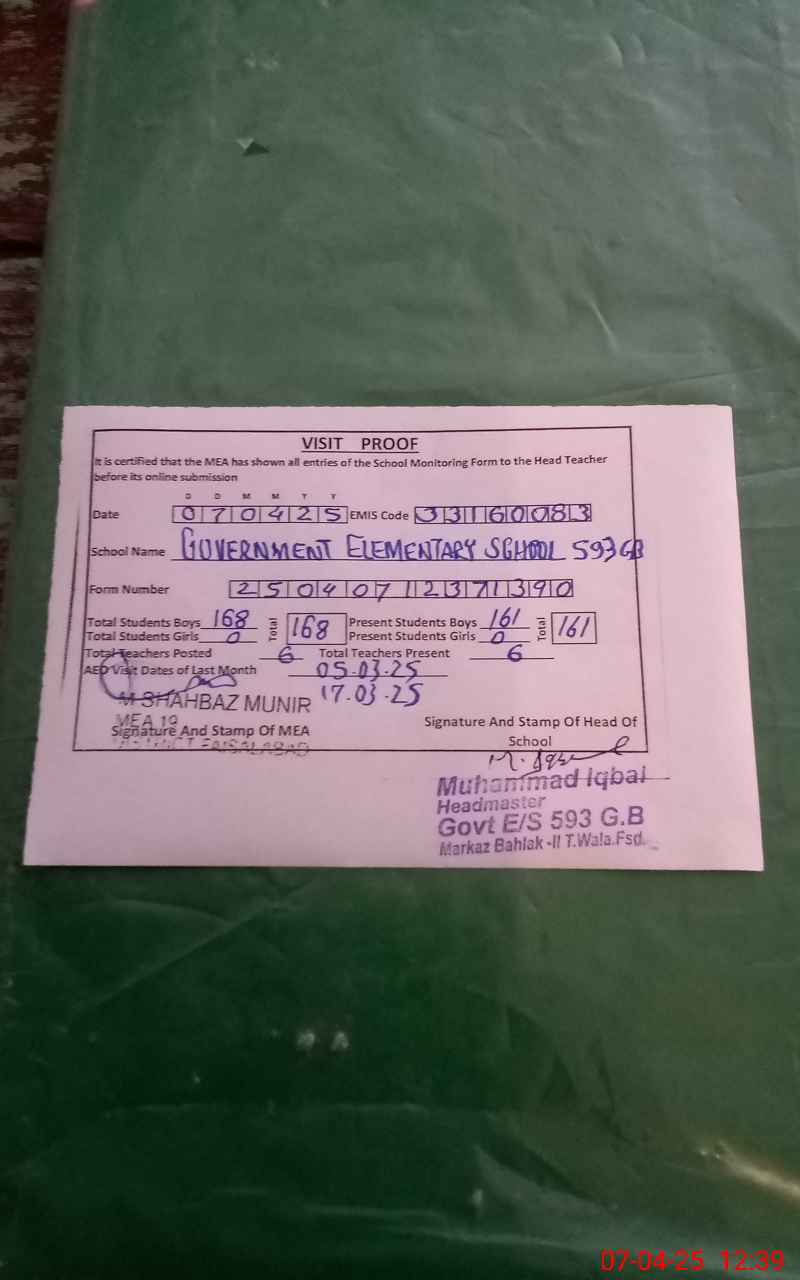 VISIT PROOF
It is certified that the MEA has shown all entries of the School Monitoring Form to the Head Teacher
before its online submission
D D M M Y Y
Date 070425 EMIS Code 33160083
School Name GOVERNMENT ELEMENTARY SCHOOL 593 GB
Form Number 25040712371390
Total Students Boys 168 Total 168 Present Students Boys 161 Total 161
Total Students Girls 0 Present Students Girls 0
Total Teachers Posted 6 Total Teachers Present 6
AEO Visit Dates of Last Month 05.03.25
17.03.25
M SHAHBAZ MUNIR
MEA 19
Signature And Stamp Of MEA
DISTRICT FAISALABAD
Signature And Stamp Of Head Of
School
M. Iqbal
Muhammad Iqbal
Headmaster
Govt E/S 593 G.B
Markaz Bahlak -II T.Wala.Fsd.
07-04-25 12:39